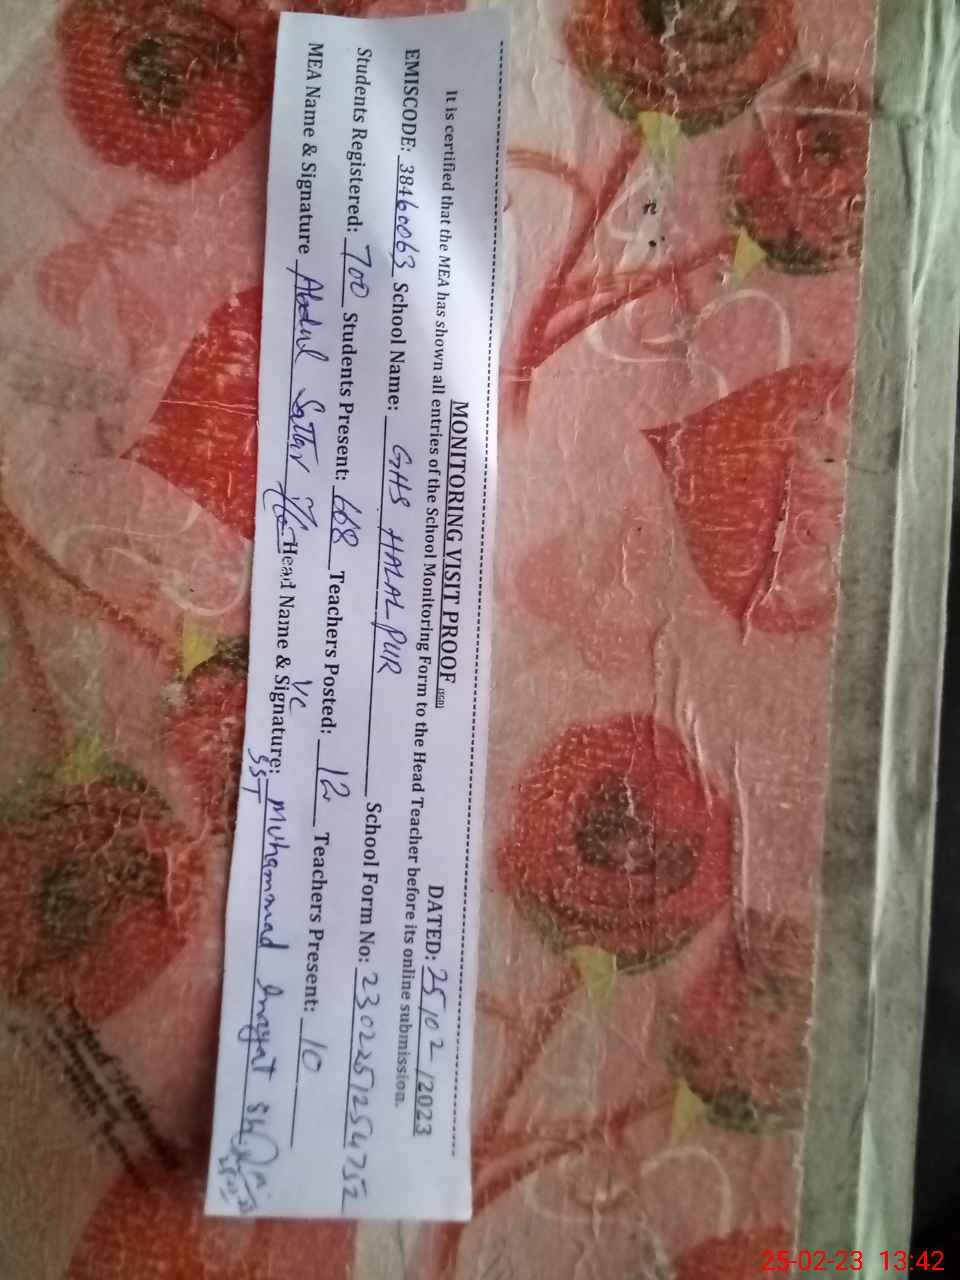 MONITORING VISIT PROOF (SGD) DATED: 25/02/2023
It is certified that the MEA has shown all entries of the School Monitoring Form to the Head Teacher before its online submission.
EMISCODE: 38460063 School Name: GHS HALAL PUR School Form No: 2302251254752
Students Registered: 700 Students Present: 668 Teachers Posted: 12 Teachers Present: 10
MEA Name & Signature Abdul Sattar Head Name & Signature: I/C SST Muhammad Inayat
25-02-23 13:42